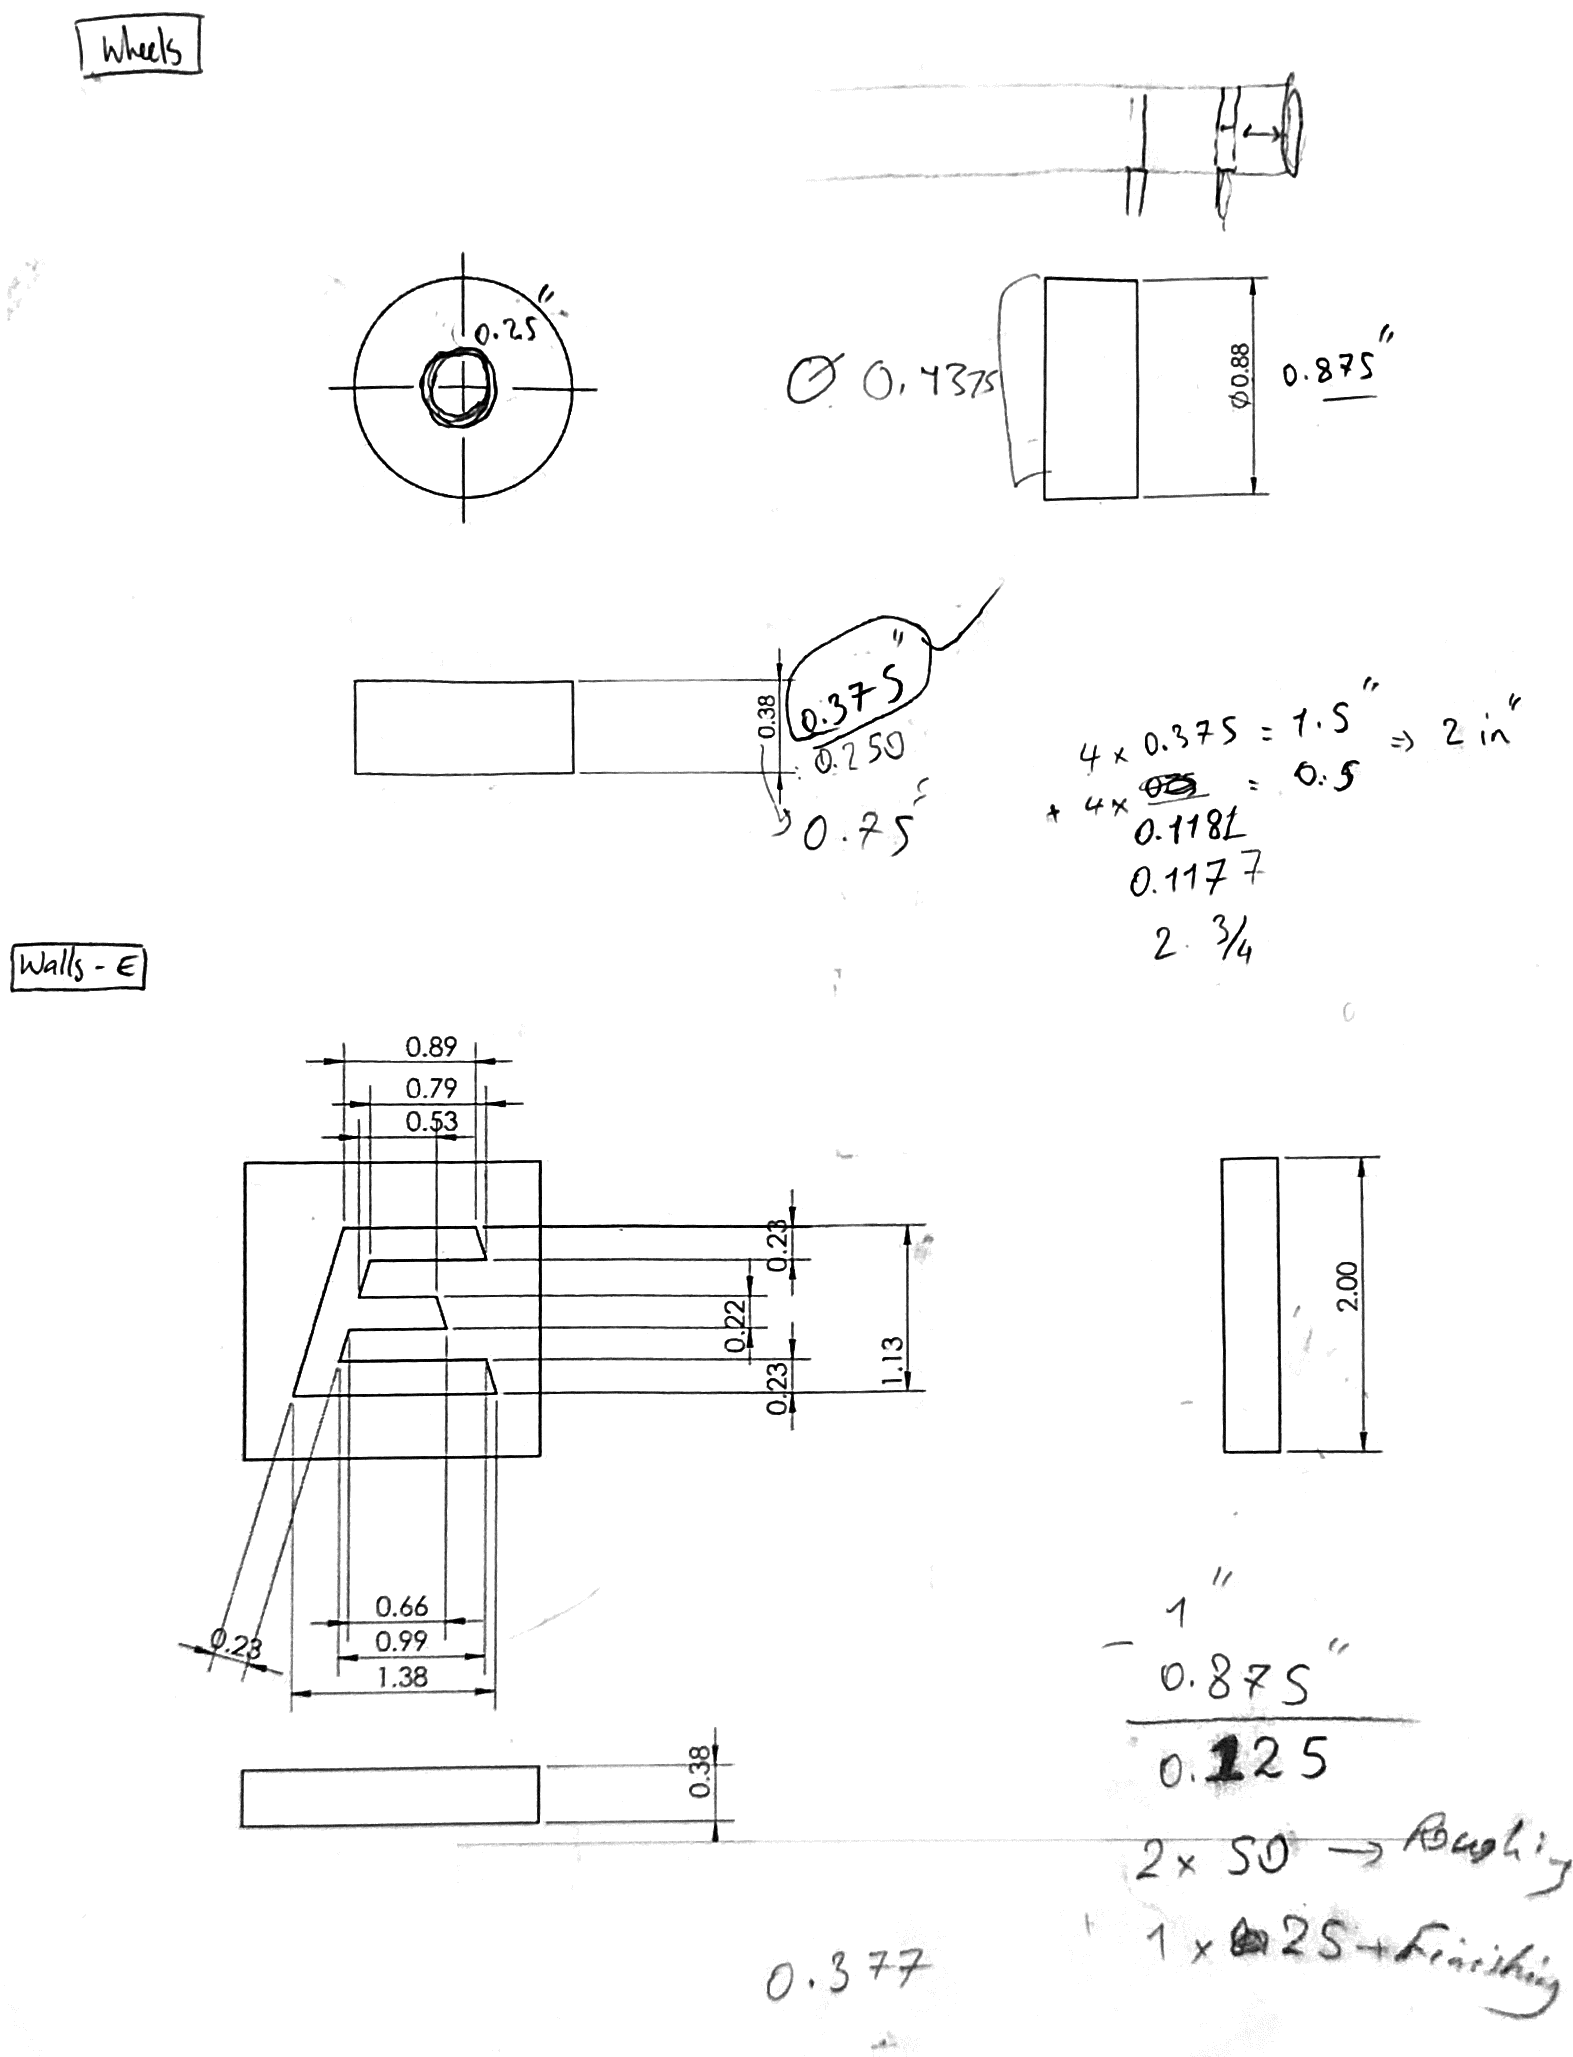 Wheels
0.25"
Ø 0.4375
Ø0.88
0.875"
0.38
0.375"
0.250
0.75"
4 x 0.375 = 1.5" ⇒ 2 in"
+ 4x = 0.5
0.1181
0.1177
2. 3/4
Walls - E
0.89
0.79
0.53
0.23
0.22
1.13
0.23
2.00
0.66
0.99
1.38
0.23
0.38
1"
- 0.875"
0.125
2 x 50 → Roughing
1 x 25 → Finishing
0.377